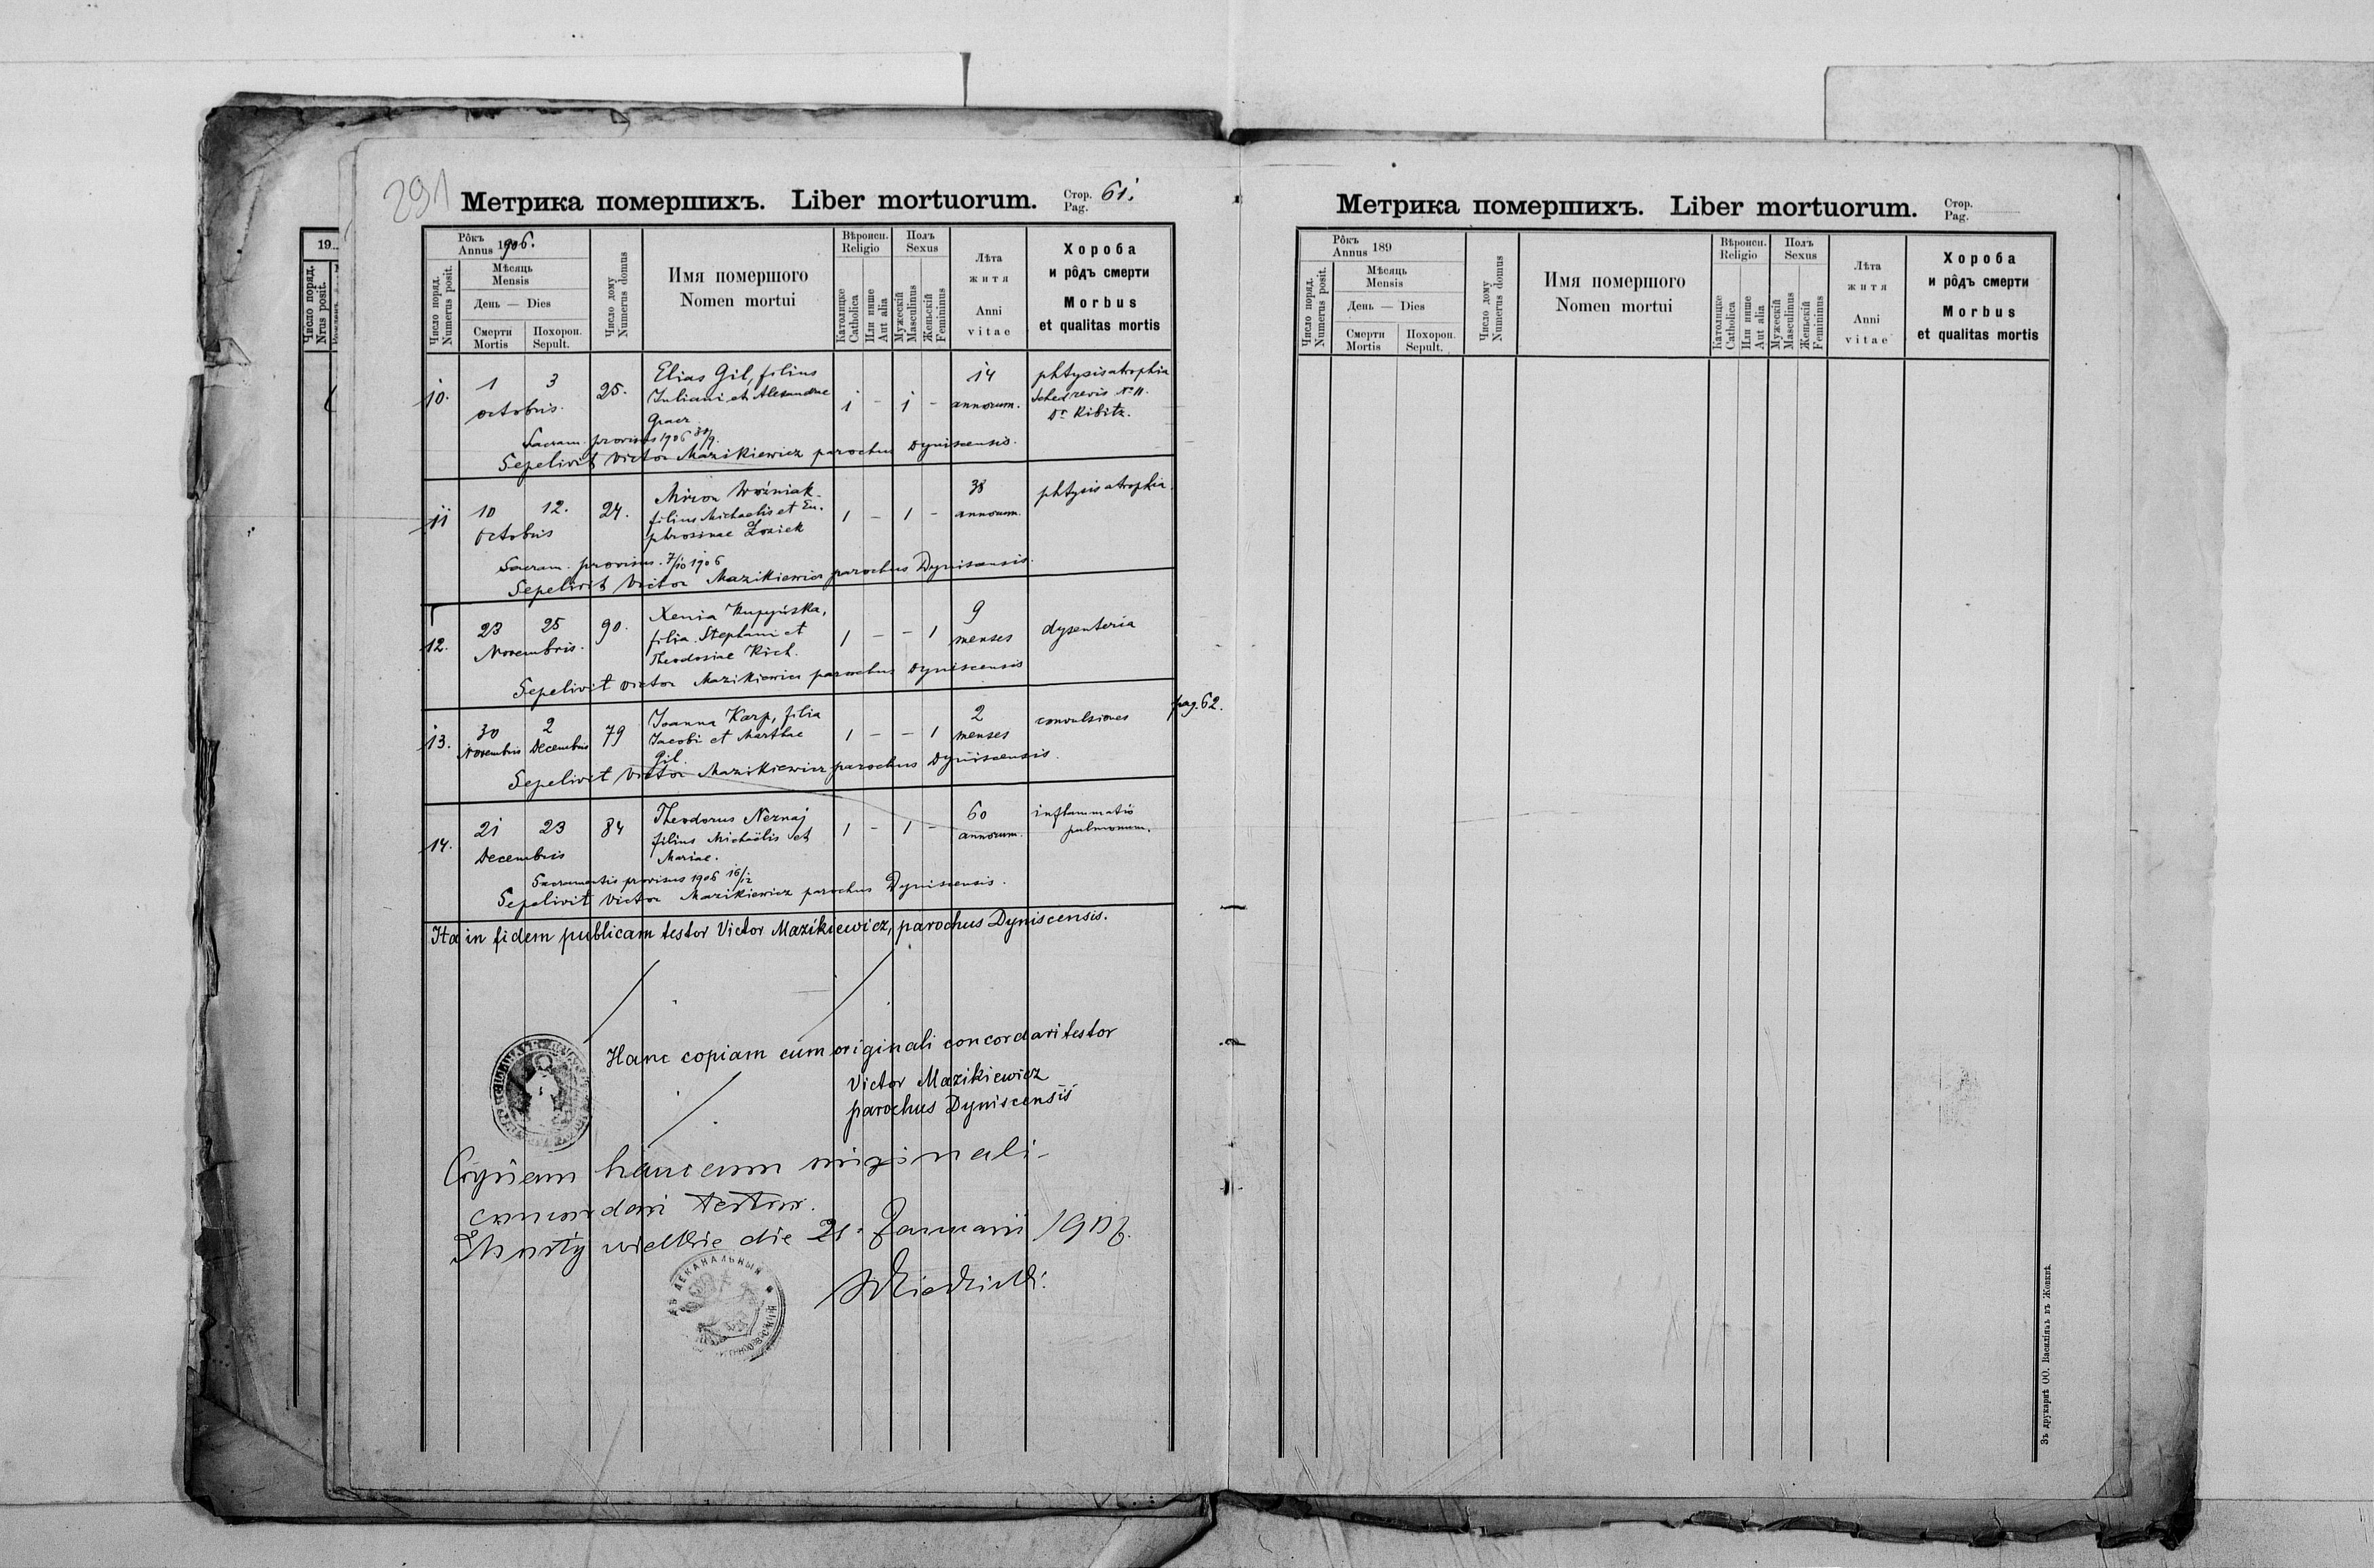 291
Метрика померших. Liber mortuorum. Стор. Pag. 61.
Рôкъ Annus 1906.
Число поряд. Numerus posit.
Мѣсяць Mensis
День — Dies
Смерти Mortis
Похорон. Sepult.
Число дому Numerus domus
Имя помершого
Nomen mortui
Вѣроисп. Religio
Католицке Catholica
Или инше Aut alia
Полъ Sexus
Мужескій Masculinus
Женьскій Femininus
Лѣта житя
Anni vitae
Хороба и рôдъ смерти
Morbus et qualitas mortis
10. 1 3 octobris. 25. Elias Gil, filius
Juliani et Alexandrae
Gracz 1 - 1 - 14 annorum. phtysis atrophia
Sched. revis № 11.
Dr Kibitz.
Sacram. provisus 1906 30/9.
Sepelivit Victor Mazikiewicz parochus Dyniscensis.
11 10 12. octobris 24. Miron Woźniak
filius Michaelis et Eu-
phrosinae Zosiek 1 - 1 - 38 annorum. phtysis atrophia.
Sacram. provisus. 7/10 1906
Sepelivit Victor Mazikiewicz parochus Dyniscensis.
12. 23 25 Novembris. 90. Xenia
filia Stephani et
Theodosiae Kich. 1 - - 1 9 menses dysenteria
Sepelivit Victor Mazikiewicz parochus Dyniscensis
13. 30 Novembris 2 Decembris 79 Joanna Karp, filia
Jacobi et Marthae
Gil. 1 - - 1 2 menses convulsiones
pag. 62.
Sepelivit Victor Mazikiewicz parochus Dyniscensis.
14. 21 23 Decembris 84 Theodorus Neznaj
filius Michaëlis et
Mariae. 1 - 1 - 60 annorum. inflammatio
pulmonum.
Sacramentis provisus 1906 16/12
Sepelivit Victor Mazikiewicz parochus Dyniscensis.
Ita in fidem publicam testor Victor Mazikiewicz, parochus Dyniscensis.
Hanc copiam cum originali concordari testor
Victor Mazikiewicz
parochus Dyniscensis
Copiam hanc cum originali
concordari testor.
wielkie die 21. Januarii 1907.
ДЕКАНАЛЬНЫЙ
19
Число поряд.
Nrus posit.
Метрика помершихъ. Liber mortuorum. Стор. Pag.
Рôкъ Annus 189
Число поряд. Numerus posit.
Мѣсяць Mensis
День — Dies
Смерти Mortis
Похорон. Sepult.
Число дому Numerus domus
Имя помершого
Nomen mortui
Вѣроисп. Religio
Католицке Catholica
Или инше Aut alia
Полъ Sexus
Мужескій Masculinus
Женьскій Femininus
Лѣта житя
Anni vitae
Хороба и рôдъ смерти
Morbus et qualitas mortis
Зъ друкарнѣ ОО. Василіянъ въ Жовквѣ.